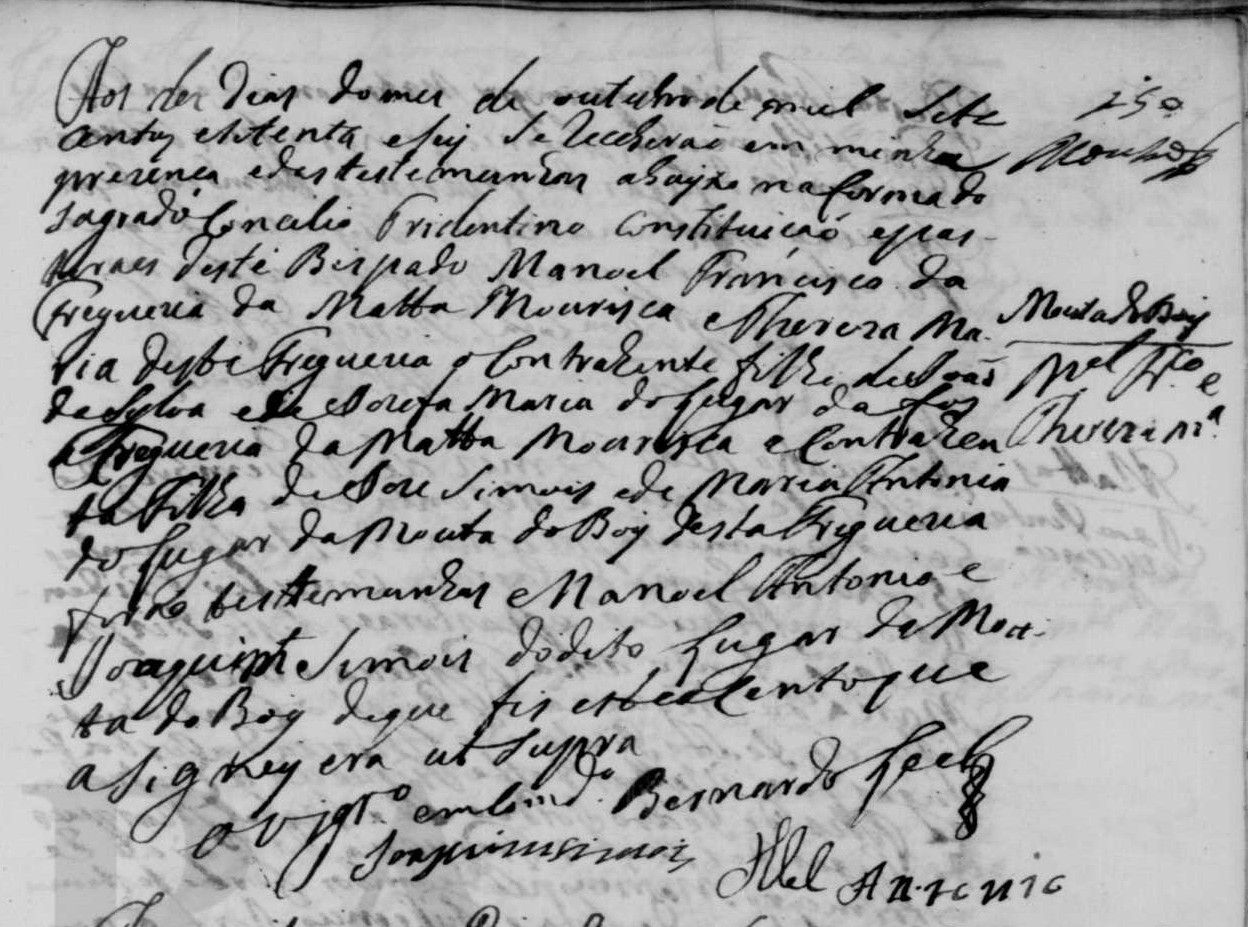 Aos des Dias do mes de outubro de mil Sete
centos e oitenta e seis Se Receberão em minha
prezença e das testemunhas abajxo na forma do
Sagrado Concilio Tridentino Constituição e pas-
toraes deste Bispado Manoel Francisco da
Fregueria da Matta Mourisca e Thereza Ma-
ria deste Fregueria o Contrahente filho de João
da Sylva e de Maria do Lugar da
Fregueria da Matta Mourisca e Contrahen
ta Filha de Jose Simois e de Maria Antonia
do Lugar da Mouta do Boy desta Fregueria
forão testtemunhas e Manoel Antonio e
Joaquim Simois do dito Lugar da Mou-
ta do Boy de que fis este acento que
asigney era ut supra
O Vigr.º emComd.º Bernardo
Joaquim simois Mel Antonio
Mouta do Boy
Mel Fr.co e
Thereza M.ª